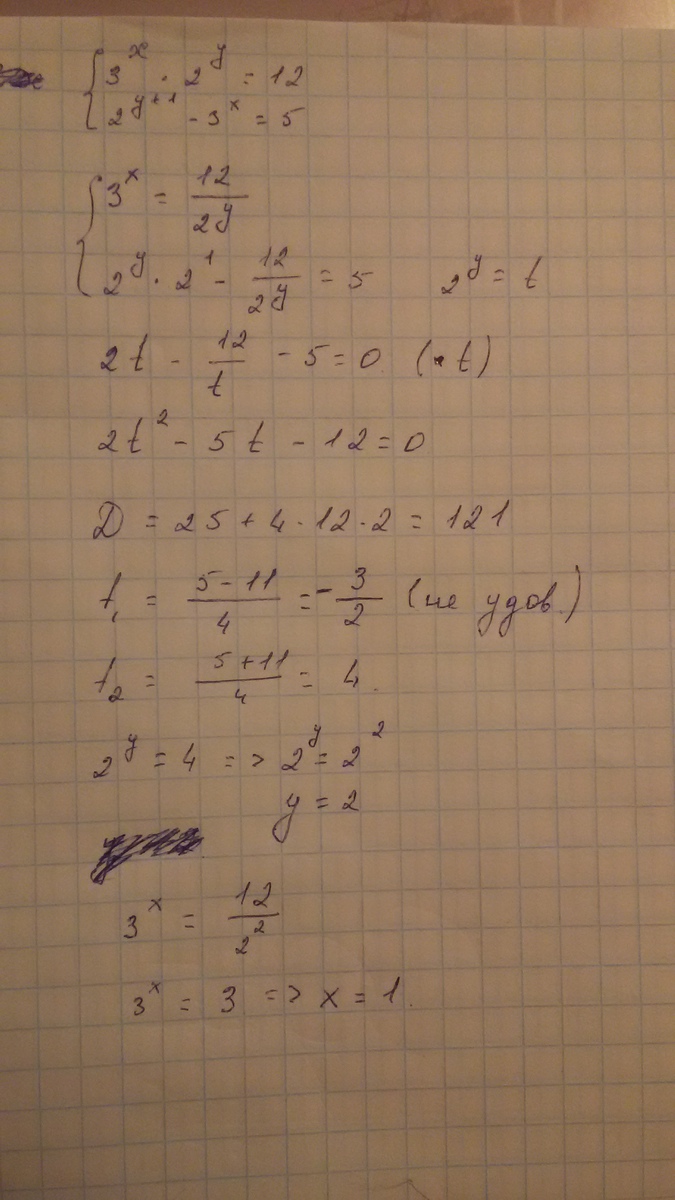 { 3^x · 2^y = 12
2^{y+1} - 3^x = 5
{ 3^x = 12/2^y
2^y · 2^1 - 12/2^y = 5    2^y = t
2t - 12/t - 5 = 0 (· t)
2t^2 - 5t - 12 = 0
D = 25 + 4 · 12 · 2 = 121
t_1 = (5-11)/4 = - 3/2 (не удов.)
t_2 = (5+11)/4 = 4.
2^y = 4 => 2^y = 2^2
y = 2
3^x = 12/2^2
3^x = 3 => x = 1.